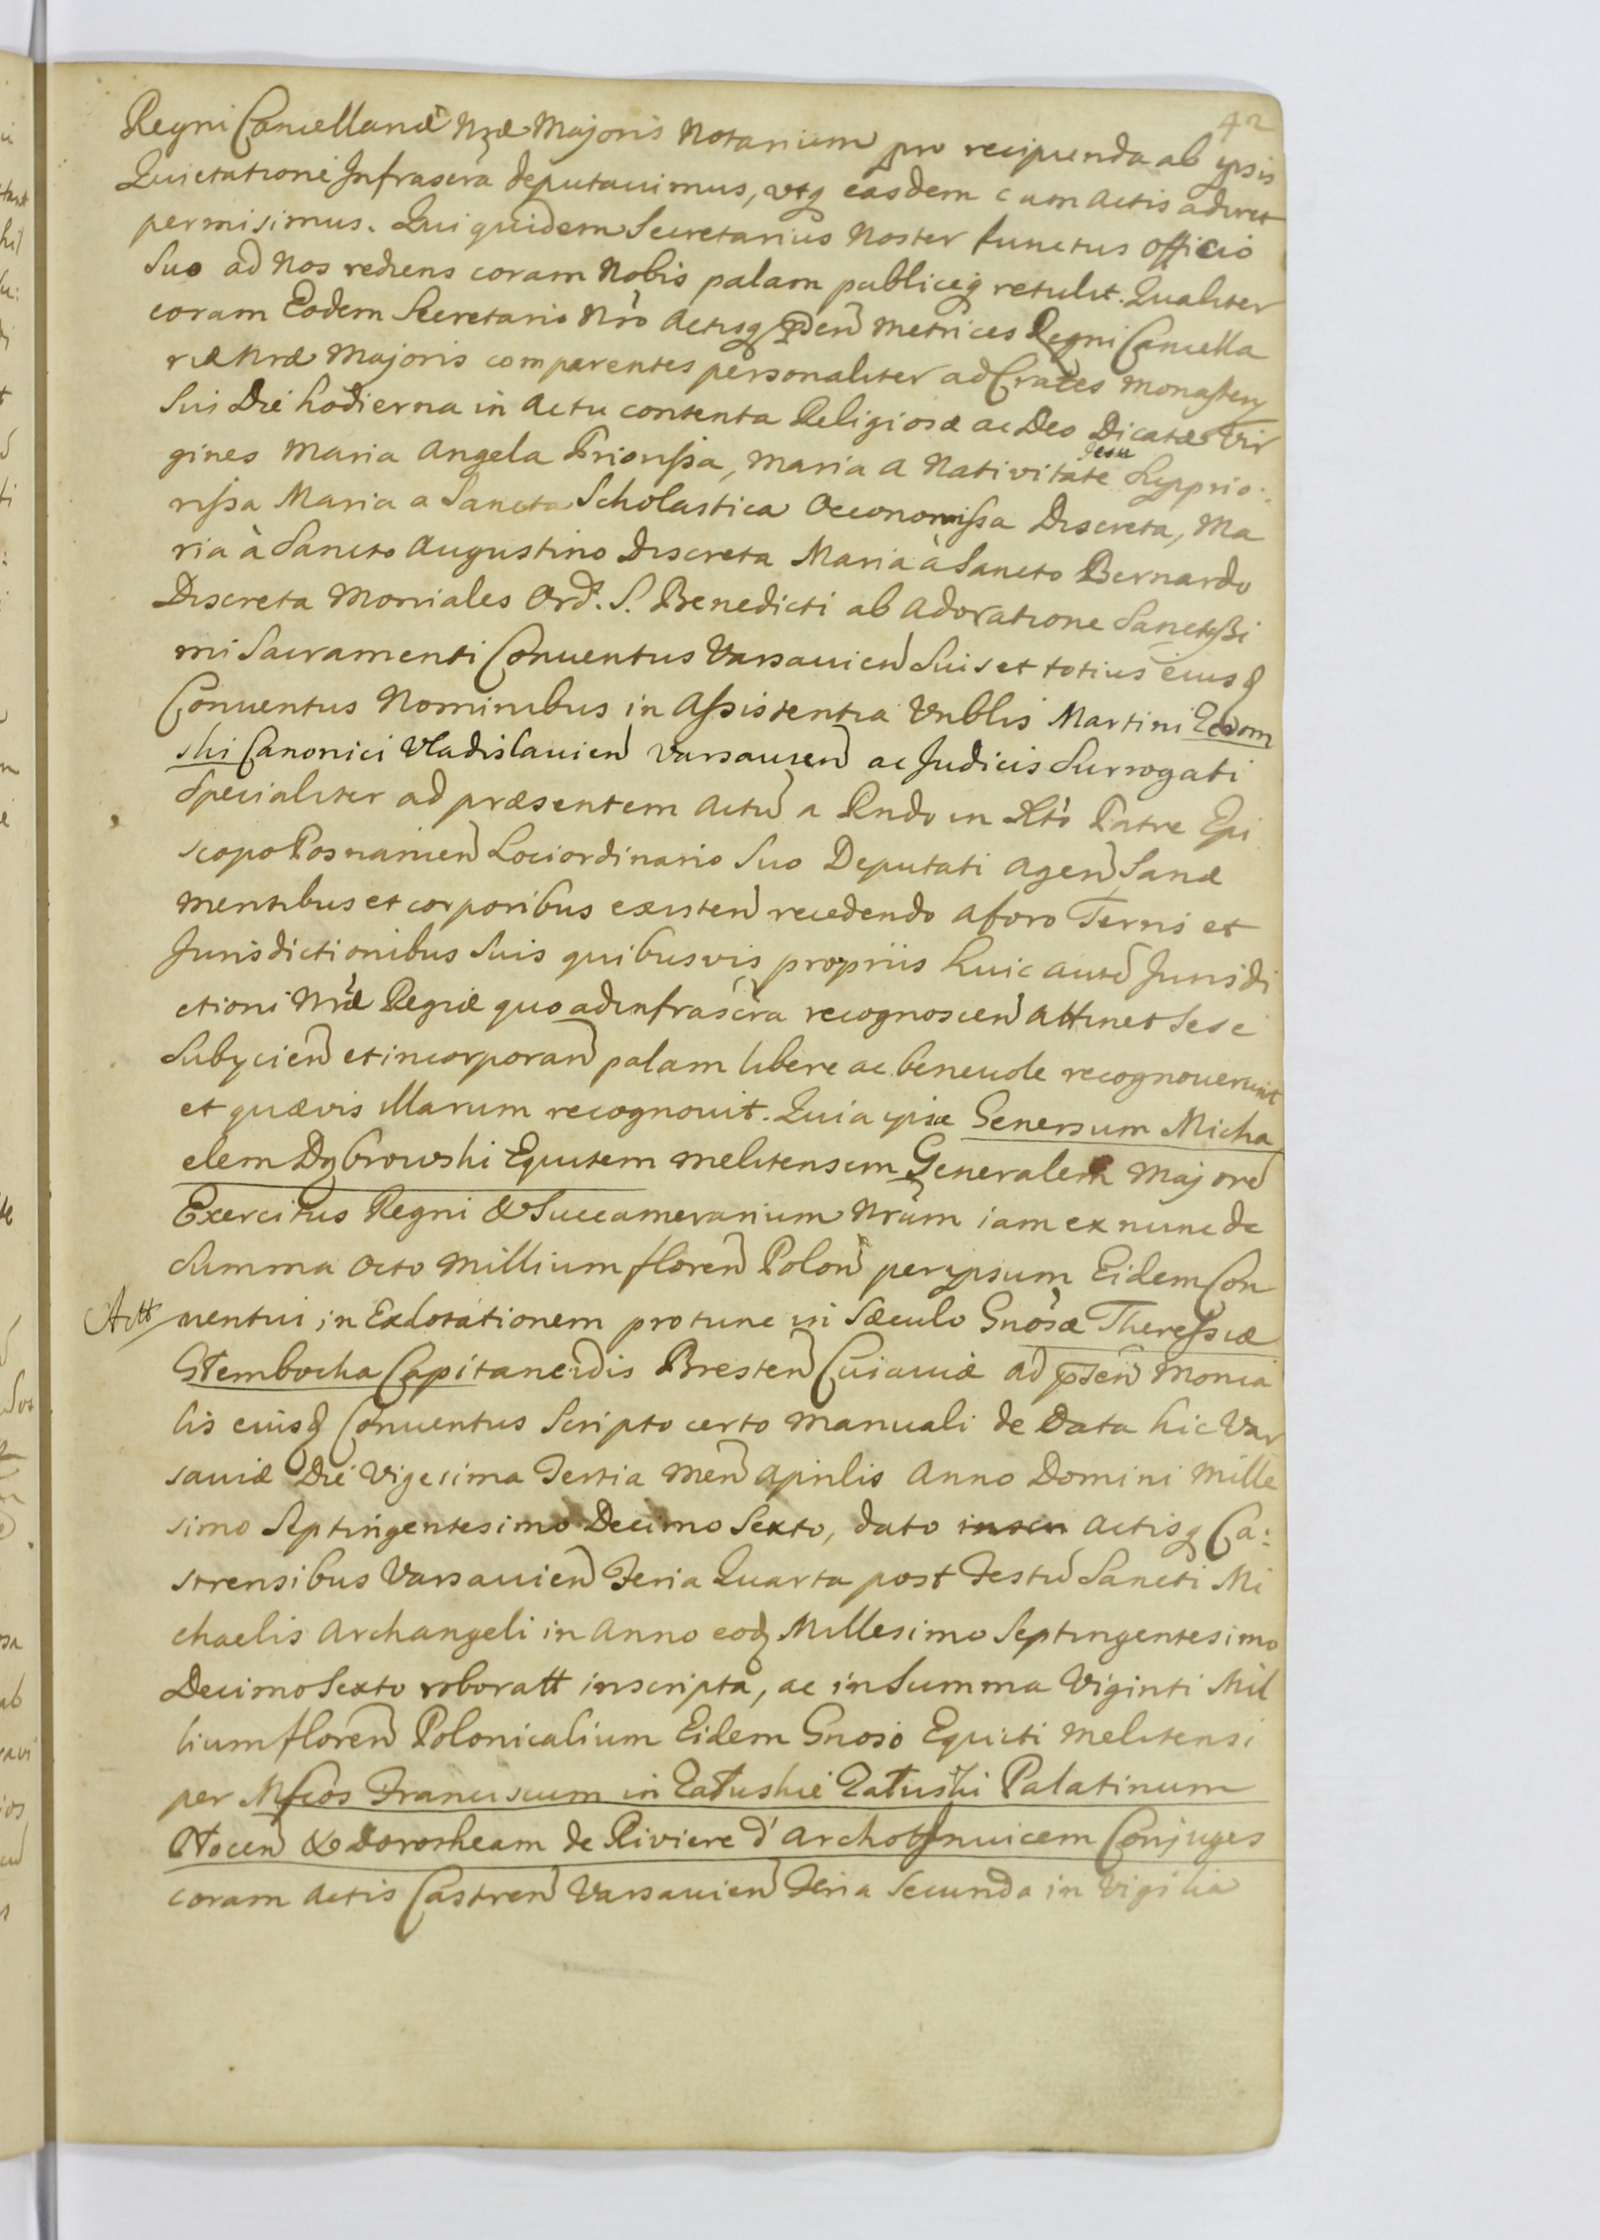 42
Regni Cancellariæ Nræ Majoris Notarium pro recipienda ab ipsis
Quietatione Infrascra deputavimus, utq easdem cum Actis adiret
permisimus. Qui quidem Secretarius Noster functus Officio
Suo ad Nos rediens coram Nobis palam publiceq retulit. Qualiter
coram Eodem Secretario Nro Actisq pnten Metrices Regni Cancella
riæ Nræ Majoris comparentes personaliter ad Crates Monastery
Sui Die hodierna in Actu contenta Religiosæ ac Deo Dicatæ Vir
gines Maria Angela Priorissa, Maria a Nativitate Jesu Supprio:
rissa Maria a Sancta Scholastica Oeconomissa Discreta, Ma
ria à Sancto Augustino Discreta Maria à Sancto Bernardo
Discreta Moniales Ord. S. Benedicti ab Adoratione Sanctissi
mi Sacramenti Conventus Varsavien Suis et totius eiusq
Conventus Nominibus in Assistentia Vnblis Martini
ski Canonici Vladislavien Varsavien ac Judicis Surrogati
Specialiter ad præsentem Actu a Rndo in Xto Patre Epi
scopo Posnanien Loci ordinario Suo Deputati Agen Sanæ
Mentibus et corporibus existen recedendo a foro Terris et
Jurisdictionibus Suis quibusvis propriis huic aute Jurisdi
ctioni Nræ Regiæ quo ad infrascra recognoscen Attinet Sese
Subycien et incorporan palam libere ac benevole recognoverunt
et quævis illarum recognovit. Quia ipsæ Generosum Micha
elem Dąbrowski Equitem melitensem Generalem Majore
Exercitus Regni & Succamerarium Nrum iam ex nunc de
Summa Octo Millium floren Polon per ipsum Eidem Con
Att ventui in Exdotationem pro tunc in Sæculo Gnosæ Theressiæ
Stembocka Capitaneidis Bresten Cuiaviæ ad pnten Monia
lis eiusq Conventus Scripto certo Manuali de Data hic Var
saviæ Die Vigesima Tertia Men Aprilis Anno Domini Mille
simo Septingentesimo Decimo Sexto, dato inscri Actisq Ca:
strensibus Varsavien Feria Quarta post Festu Sancti Mi
chaelis Archangeli in Anno eoq Millesimo Septingentesimo
Decimo Sexto roboratt inscripta, ac in Summa Viginti Mil
lium floren Polonicalium Eidem Gnoso Equiti Melitensi
per Mfcos Franciscum in Załuskie Załuski Palatinum
Płocen & Dorotheam de Riviere d'Archot Invicem Conjuges
coram Actis Castren Varsavien Feria Secunda in Vigilia